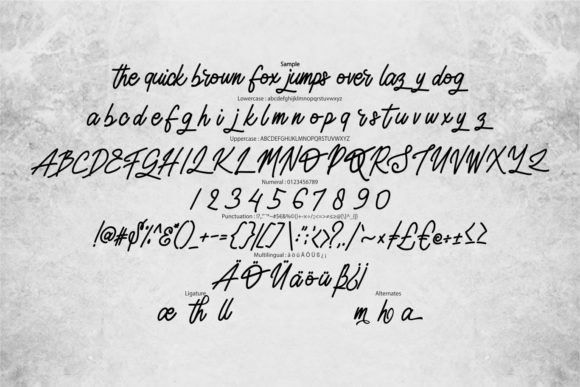 Sample
the quick brown fox jumps over laz y dog
Lowercase : abcdefghijklmnopqrstuvwxyz
a b c d e f g h i j k l m n o p q r s t u v w x y z
Uppercase : ABCDEFGHIJKLMNOPQRSTUVWXYZ
A B C D E F G H I J K L M N O P Q R S T U V W X Y Z
Numeral : 0123456789
1 2 3 4 5 6 7 8 9 0
Punctuation :
!@#$%^&*()_+-={}|[]\:";'<>?,./
Multilingual : ä ö ü Ä Ö Ü ß ¿ ¡
Ä Ö Ü ä ö ü ß ¿ ¡
Ligature Alternates
æ th ll m ho a